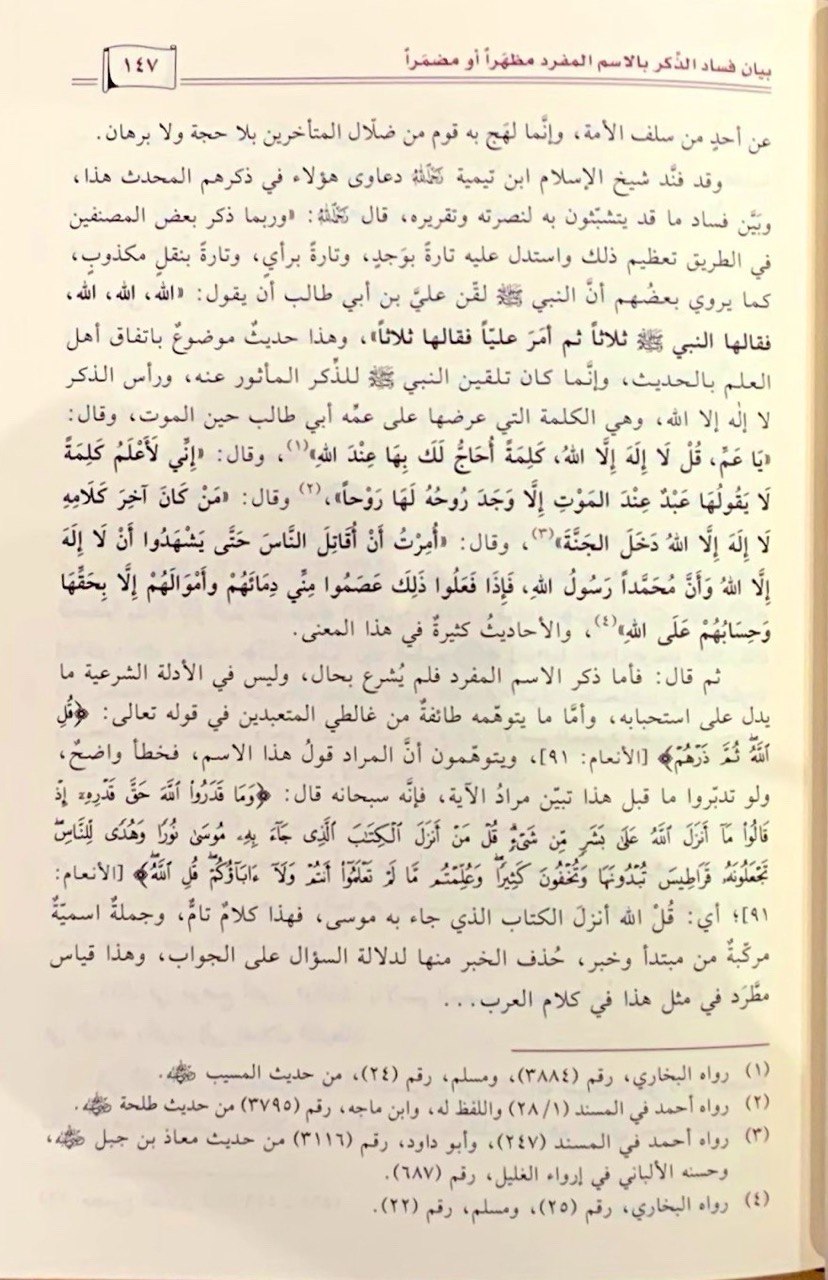 بيان فساد الذِّكر بالاسم المفرد مظهَراً أو مضمَراً
١٤٧
عن أحدٍ من سلف الأمة، وإنَّما لهَج به قوم من ضلّال المتأخرين بلا حجة ولا برهان.
وقد فنَّد شيخ الإسلام ابن تيمية رَحِمَهُ اللهُ دعاوى هؤلاء في ذكرهم المحدث هذا،
وبيَّن فساد ما قد يتشبّثون به لنصرته وتقريره، قال رَحِمَهُ اللهُ: «وربما ذكر بعض المصنفين
في الطريق تعظيم ذلك واستدل عليه تارةً بوَجدٍ، وتارةً برأيٍ، وتارةً بنقلٍ مكذوبٍ،
كما يروي بعضُهم أنَّ النبي ﷺ لقّن عليَّ بن أبي طالب أن يقول: «الله، الله، الله،
فقالها النبي ﷺ ثلاثاً ثم أمَرَ عليّاً فقالها ثلاثاً»، وهذا حديثٌ موضوعٌ باتفاق أهل
العلم بالحديث، وإنَّما كان تلقين النبي ﷺ للذِّكر المأثور عنه، ورأس الذكر
لا إلٰه إلا الله، وهي الكلمة التي عرضها على عمِّه أبي طالب حين الموت، وقال:
«يَا عَمِّ، قُلْ لَا إِلَهَ إِلَّا اللهُ، كَلِمَةً أُحَاجُّ لَكَ بِهَا عِنْدَ اللهِ»(١)، وقال: «إِنِّي لَأَعْلَمُ كَلِمَةً
لَا يَقُولُهَا عَبْدٌ عِنْدَ المَوْتِ إِلَّا وَجَدَ رُوحُهُ لَهَا رَوْحاً»،(٢) وقال: «مَنْ كَانَ آخِرَ كَلَامِهِ
لَا إِلَهَ إِلَّا اللهُ دَخَلَ الجَنَّةَ»(٣)، وقال: «أُمِرْتُ أَنْ أُقَاتِلَ النَّاسَ حَتَّى يَشْهَدُوا أَنْ لَا إِلَهَ
إِلَّا اللهُ وَأَنَّ مُحَمَّداً رَسُولُ اللهِ، فَإِذَا فَعَلُوا ذَلِكَ عَصَمُوا مِنِّي دِمَائَهُمْ وأَمْوَالَهُمْ إِلَّا بِحَقِّهَا
وَحِسَابُهُمْ عَلَى اللهِ»(٤)، والأحاديثُ كثيرةٌ في هذا المعنى.
ثم قال: فأما ذكر الاسم المفرد فلم يُشرع بحال، وليس في الأدلة الشرعية ما
يدل على استحبابه، وأمَّا ما يتوهّمه طائفةٌ من غالطي المتعبدين في قوله تعالى: ﴿قُلِ
ٱللَّهُ ثُمَّ ذَرْهُمْ﴾ [الأنعام: ٩١]، ويتوهّمون أنَّ المراد قولُ هذا الاسم، فخطأ واضحٌ،
ولو تدبّروا ما قبل هذا تبيّن مرادُ الآية، فإنَّه سبحانه قال: ﴿وَمَا قَدَرُواْ ٱللَّهَ حَقَّ قَدْرِهِۦٓ إِذْ
قَالُواْ مَآ أَنزَلَ ٱللَّهُ عَلَىٰ بَشَرٍ مِّن شَىْءٍ قُلْ مَنْ أَنزَلَ ٱلْكِتَٰبَ ٱلَّذِى جَآءَ بِهِۦ مُوسَىٰ نُورًا وَهُدًى لِّلنَّاسِ
تَجْعَلُونَهُۥ قَرَاطِيسَ تُبْدُونَهَا وَتُخْفُونَ كَثِيرًا وَعُلِّمْتُم مَّا لَمْ تَعْلَمُوٓاْ أَنتُمْ وَلَآ ءَابَآؤُكُمْ قُلِ ٱللَّهُ﴾ [الأنعام:
٩١]؛ أي: قُلْ الله أنزلَ الكتاب الذي جاء به موسى، فهذا كلامٌ تامٌّ، وجملةٌ اسميّةٌ
مركّبةٌ من مبتدأ وخبر، حُذف الخبر منها لدلالة السؤال على الجواب، وهذا قياس
مطَّرَد في مثل هذا في كلام العرب...
(١) رواه البخاري، رقم (٣٨٨٤)، ومسلم، رقم (٢٤)، من حديث المسيب رضي الله عنه.
(٢) رواه أحمد في المسند (٢٨/١) واللفظ له، وابن ماجه، رقم (٣٧٩٥) من حديث طلحة رضي الله عنه.
(٣) رواه أحمد في المسند (٢٤٧)، وأبو داود، رقم (٣١١٦) من حديث معاذ بن جبل رضي الله عنه،
وحسنه الألباني في إرواء الغليل، رقم (٦٨٧).
(٤) رواه البخاري، رقم (٢٥)، ومسلم، رقم (٢٢).